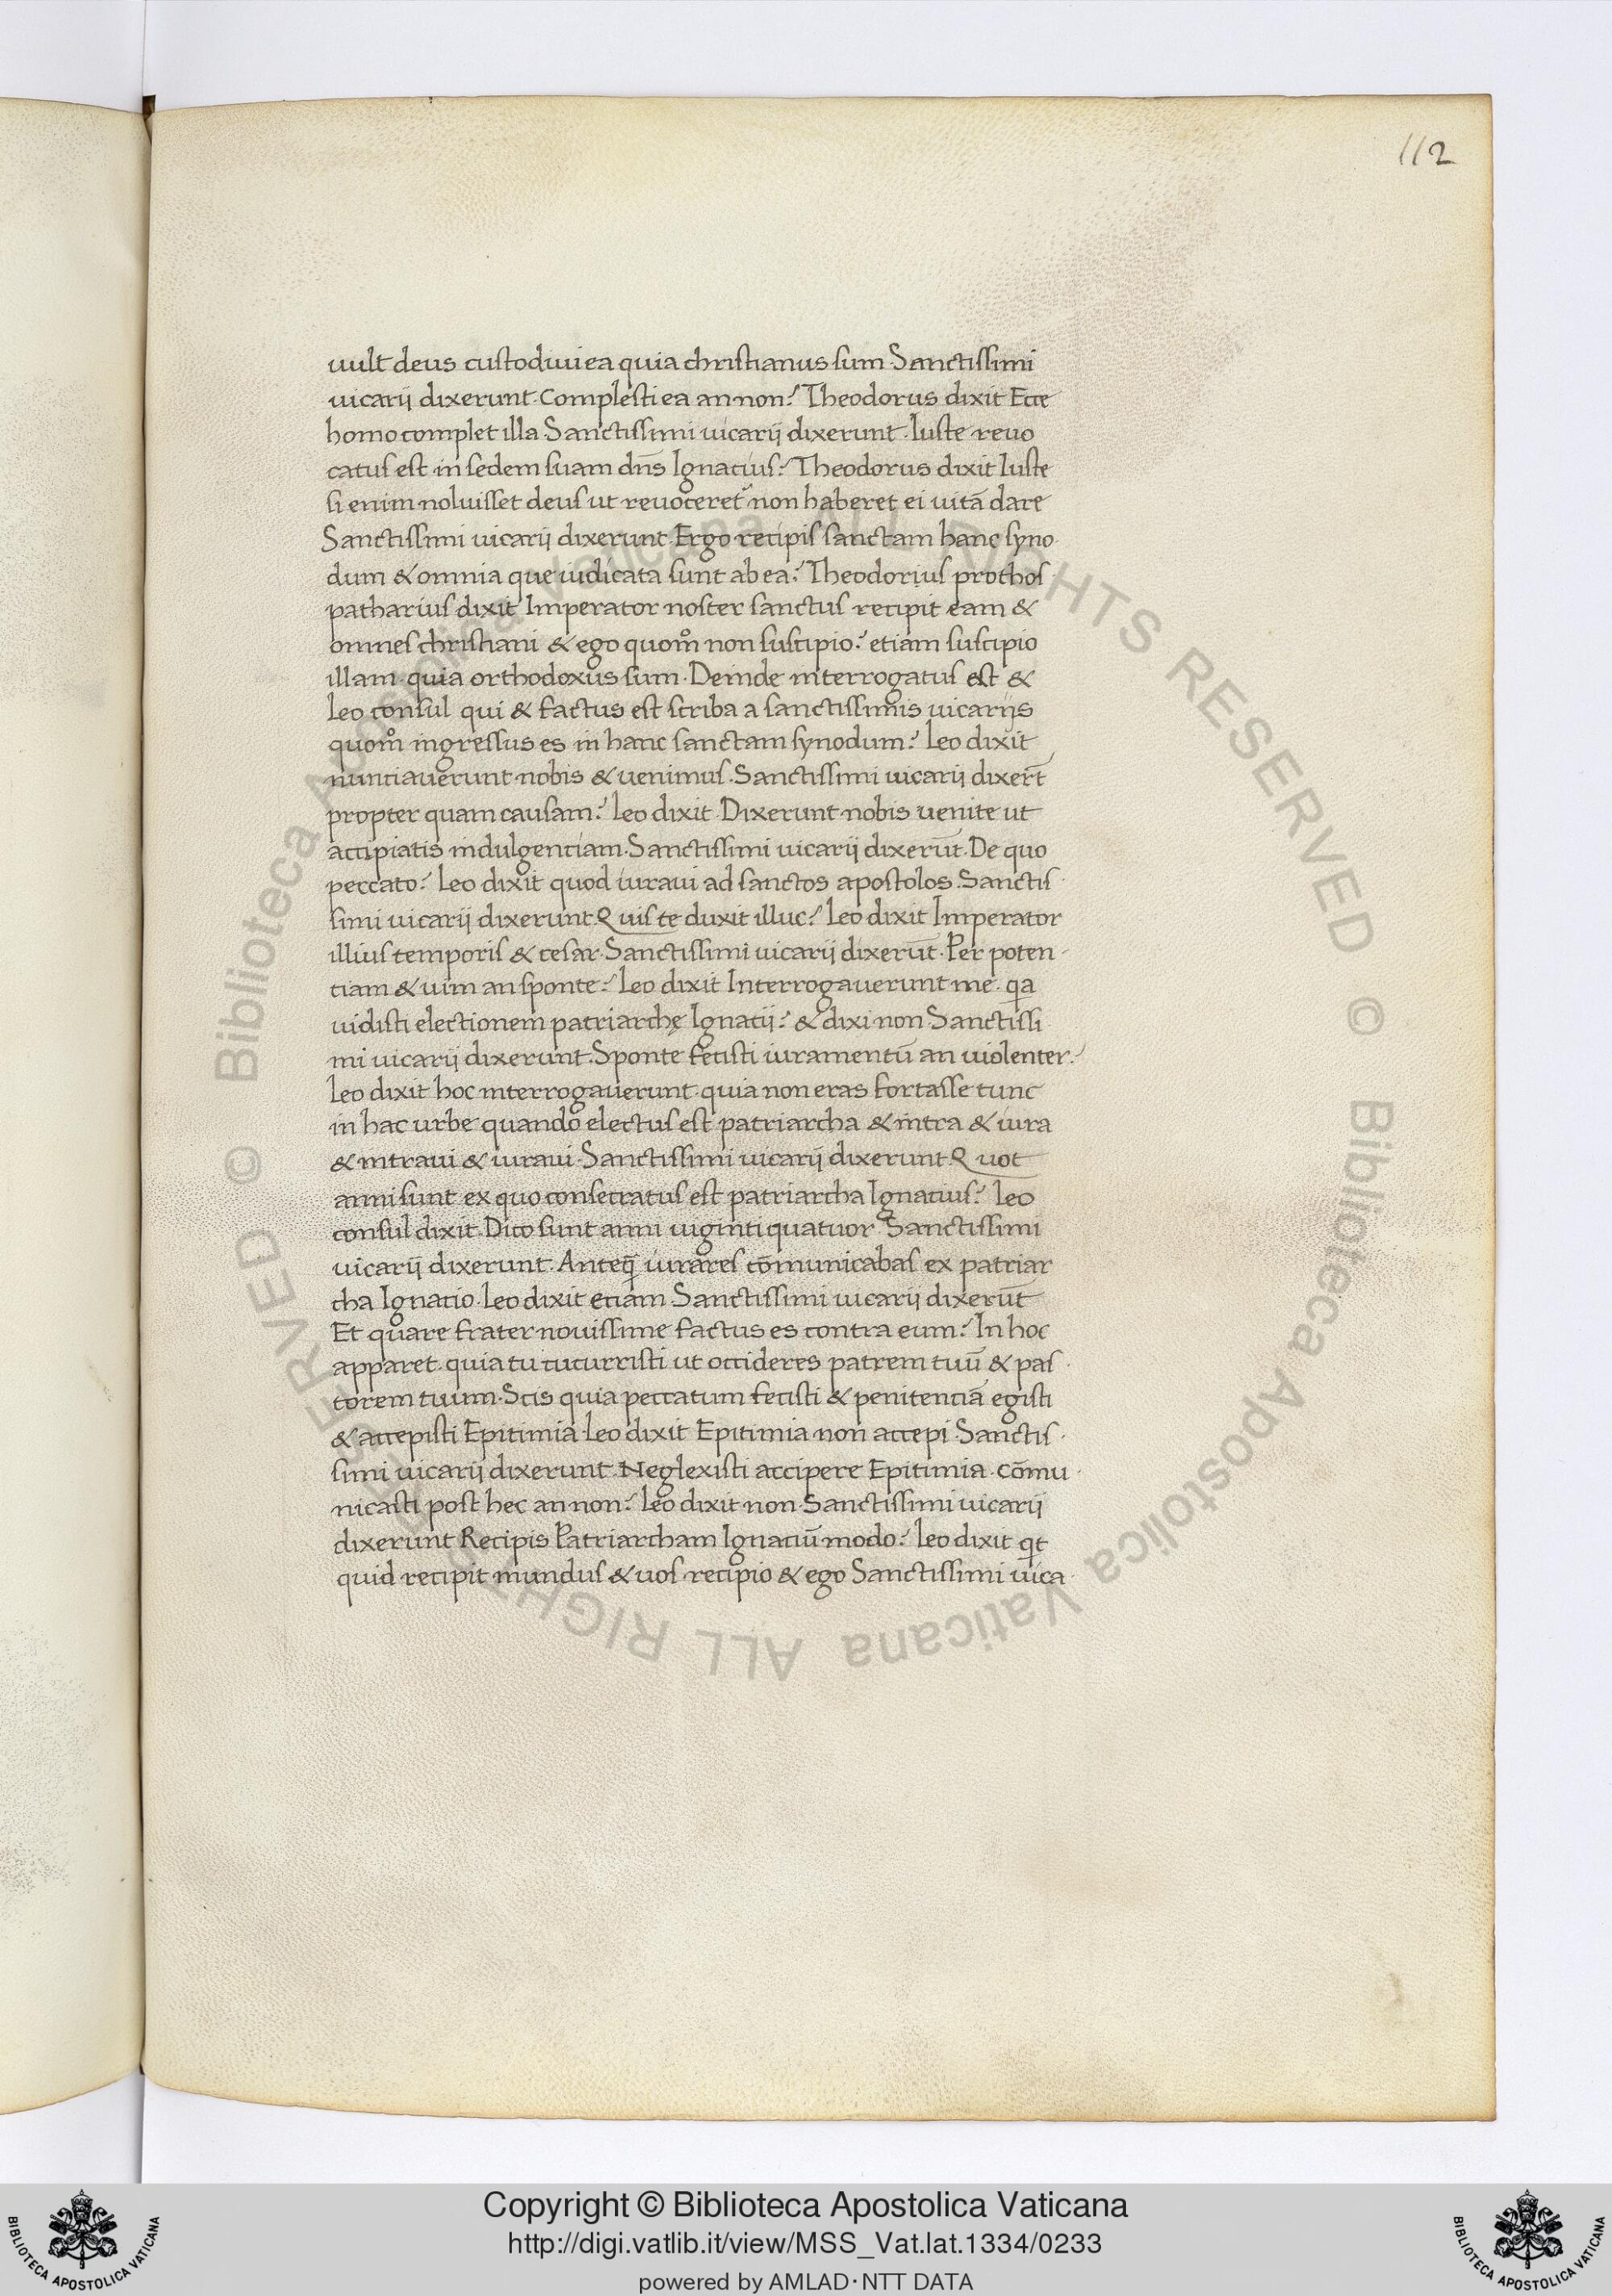 112
uult deus custodiui ea quia christianus sum. Sanctissimi
uicarij dixerunt. Complesti ea an non? Theodorus dixit Ecce
homo complet illa. Sanctissimi uicarij dixerunt. Iuste reuo
catus est in sedem suam dn̄s Ignatius? Theodorus dixit Iuste
si enim noluisset deus ut reuoceret non haberet ei uitā dare
Sanctissimi uicarij dixerunt. Ergo recipis sanctam hanc syno
dum & omnia que iudicata sunt ab ea? Theodorius prothos
patharius dixit Imperator noster sanctus recipit eam &
omnes christiani & ego quom̊ non suscipio? etiam suscipio
illam quia orthodoxus sum. Deinde interrogatus est &
Leo consul qui & factus est scriba a sanctissimis uicarijs
quom̊ ingressus es in hanc sanctam synodum? Leo dixit
nuntiauerunt nobis & uenimus. Sanctissimi uicarij dixert̄
propter quam causam? Leo dixit. Dixerunt nobis uenite ut
accipiatis indulgentiam. Sanctissimi uicarij dixerūt. De quo
peccato? Leo dixit quod iuraui ad sanctos apostolos. Sanctis
simi uicarij dixerunt. Quis te duxit illuc? Leo dixit Imperator
illius temporis & cesar. Sanctissimi uicarij dixerūt. Per poten-
tiam & uim an sponte? Leo dixit Interrogauerunt me. qa
uidisti electionem patriarchę Ignatij? & dixi non Sanctissi
mi uicarij dixerunt. Sponte fecisti iuramentū an uiolenter?
Leo dixit hoc interrogauerunt. quia non eras fortasse tunc
in hac urbe quando electus est patriarcha & intra & iura
& intraui & iuraui. Sanctissimi uicarij dixerunt. Quot
anni sunt ex quo consecratus est patriarcha Ignatius? Leo
consul dixit. Dico sunt anni uiginti quatuor. Sanctissimi
uicarij dixerunt. Anteq̄ iurares cōmunicabas ex patriar
cha Ignatio. Leo dixit etiam. Sanctissimi uicarij dixerūt
Et quare frater nouissime factus es contra eum? In hoc
apparet. quia tu cucurristi ut occideres patrem tuū & pas
torem tuum. Scis quia peccatum fecisti & penitentiā egisti
& accepisti Epitimia. Leo dixit Epitimia non accepi. Sanctis
simi uicarij dixerunt. Neglexisti accipere Epitimia. cōmu
nicasti post hec an non? Leo dixit non. Sanctissimi uicarij
dixerunt Recipis Patriarcham Ignatiū modo? Leo dixit qt
quid recipit mundus & uos. recipio & ego Sanctissimi uica
© Biblioteca Apostolica Vaticana ALL RIGHTS RESERVED © Biblioteca Apostolica Vaticana ALL RIGHTS RESERVED
Copyright © Biblioteca Apostolica Vaticana
http://digi.vatlib.it/view/MSS_Vat.lat.1334/0233
powered by AMLAD·NTT DATA
BIBLIOTECA APOSTOLICA VATICANA
BIBLIOTECA APOSTOLICA VATICANA